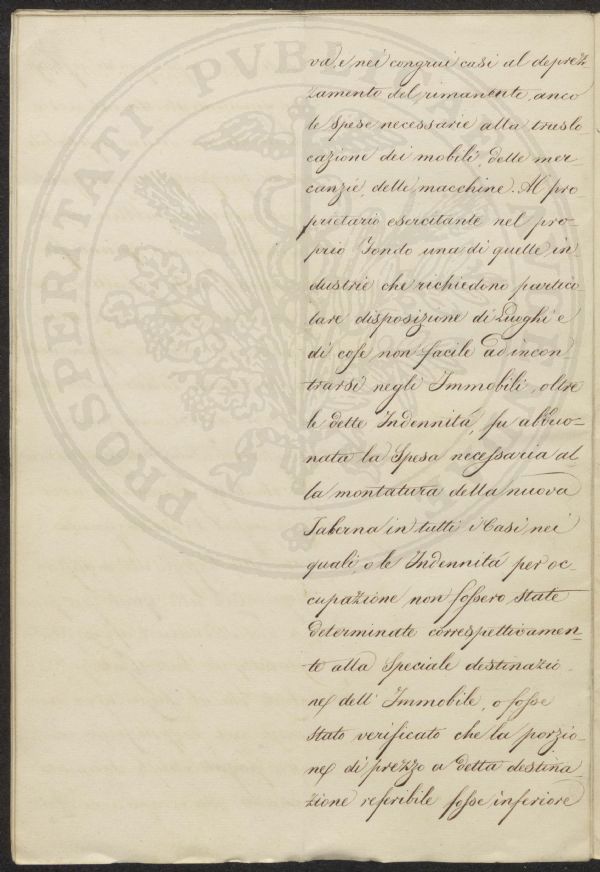 PROSPERITATI PVBLIC
va, e nei congrui casi al deprez
zamento del rimanente, anco
le Spese necessarie alla traslo
cazione dei mobili, delle mer
canzie, delle macchine. Al pro
prietario esercitante nel pro-
prio Fondo una di quelle in
dustrie che richiedono partico
lare disposizione di Luoghi e
di cose non facile ad incon
trarsi negli Immobili, oltre
le dette Indennità, fu abbuo-
nata la Spesa necessaria al
la montatura della nuova
Taberna in tutti i Casi, nei
quali, o le Indennità per oc-
cupazione non fossero state
determinate correspettivamen-
te alla Speciale destinazio
ne dell' Immobile, o fosse
stato verificato che la porzio-
ne di prezzo a detta destina
zione referibile fosse inferiore